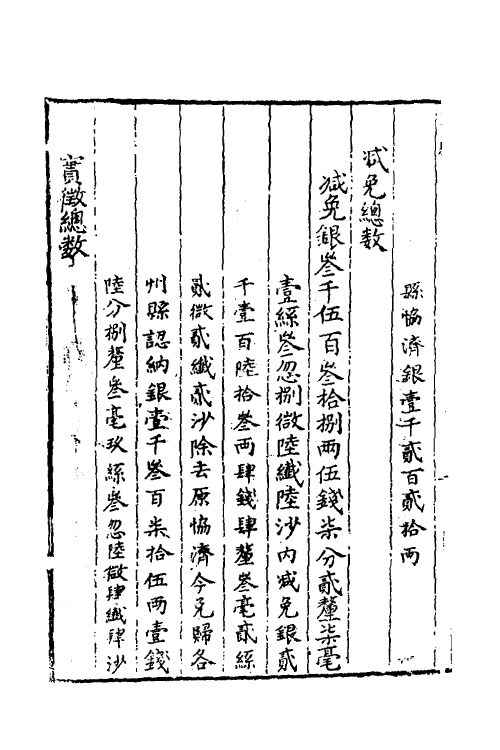 縣協濟銀壹千貳百貳拾兩
減免總數
減免銀叁千伍百叁拾捌兩伍錢柒分貳釐柒毫
壹絲叁忽捌微陸纖陸沙內減免銀貳
千壹百陸拾叁兩肆錢肆釐叁毫貳絲
貳微貳纖貳沙除去原協濟今免歸各
州縣認納銀壹千叁百柒拾伍兩壹錢
陸分捌釐叁毫玖絲叁忽陸微肆纖肆沙
實徵總數